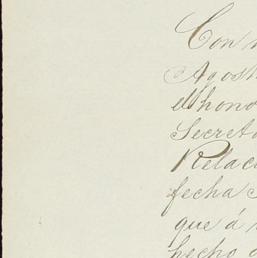 Con
Agost
el hono
Secreta
Relaci
fecha
que á
hecho